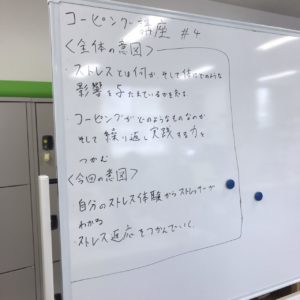 コーピング講座 #4
<全体の意図>
・ストレスとは何か そして体にどのような
影響を与えているかを知る
・コーピングがどのようなものなのか
そして繰り返し実践する力を
つかむ
<今回の意図>
自分のストレス体験からストレッサーが
わかる
・ストレス反応をつかんでいく